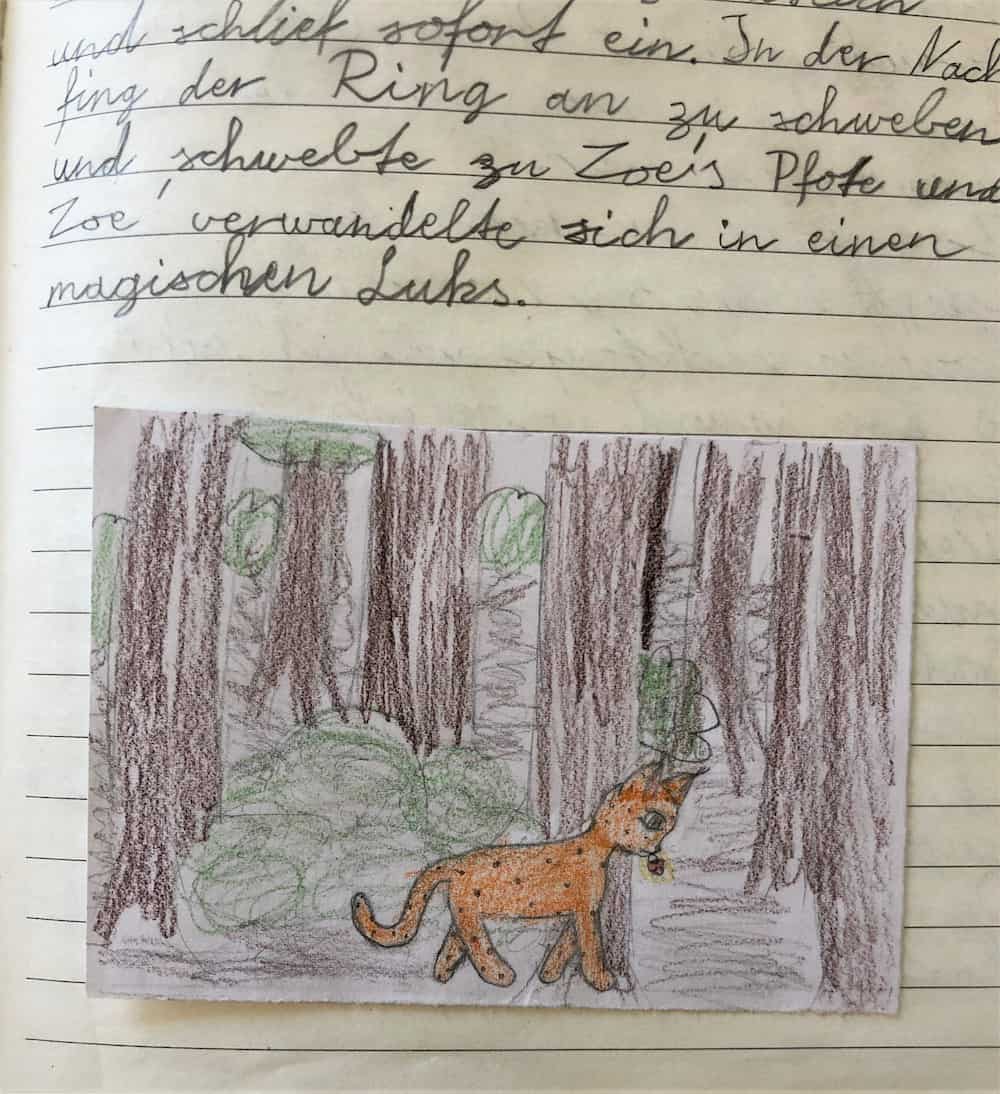 und schlief sofort ein. In der Nach
fing der Ring an zu schweben
und schwebte zu Zoe's Pfote und
Zoe verwandelte sich in einen
magischen Luks.